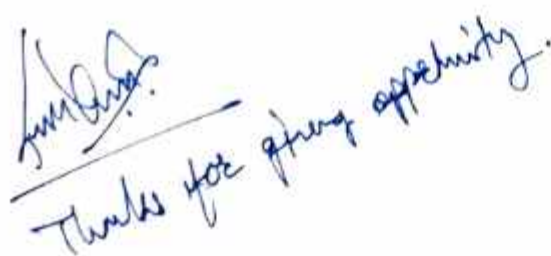 Thanks for giving oppetunity.